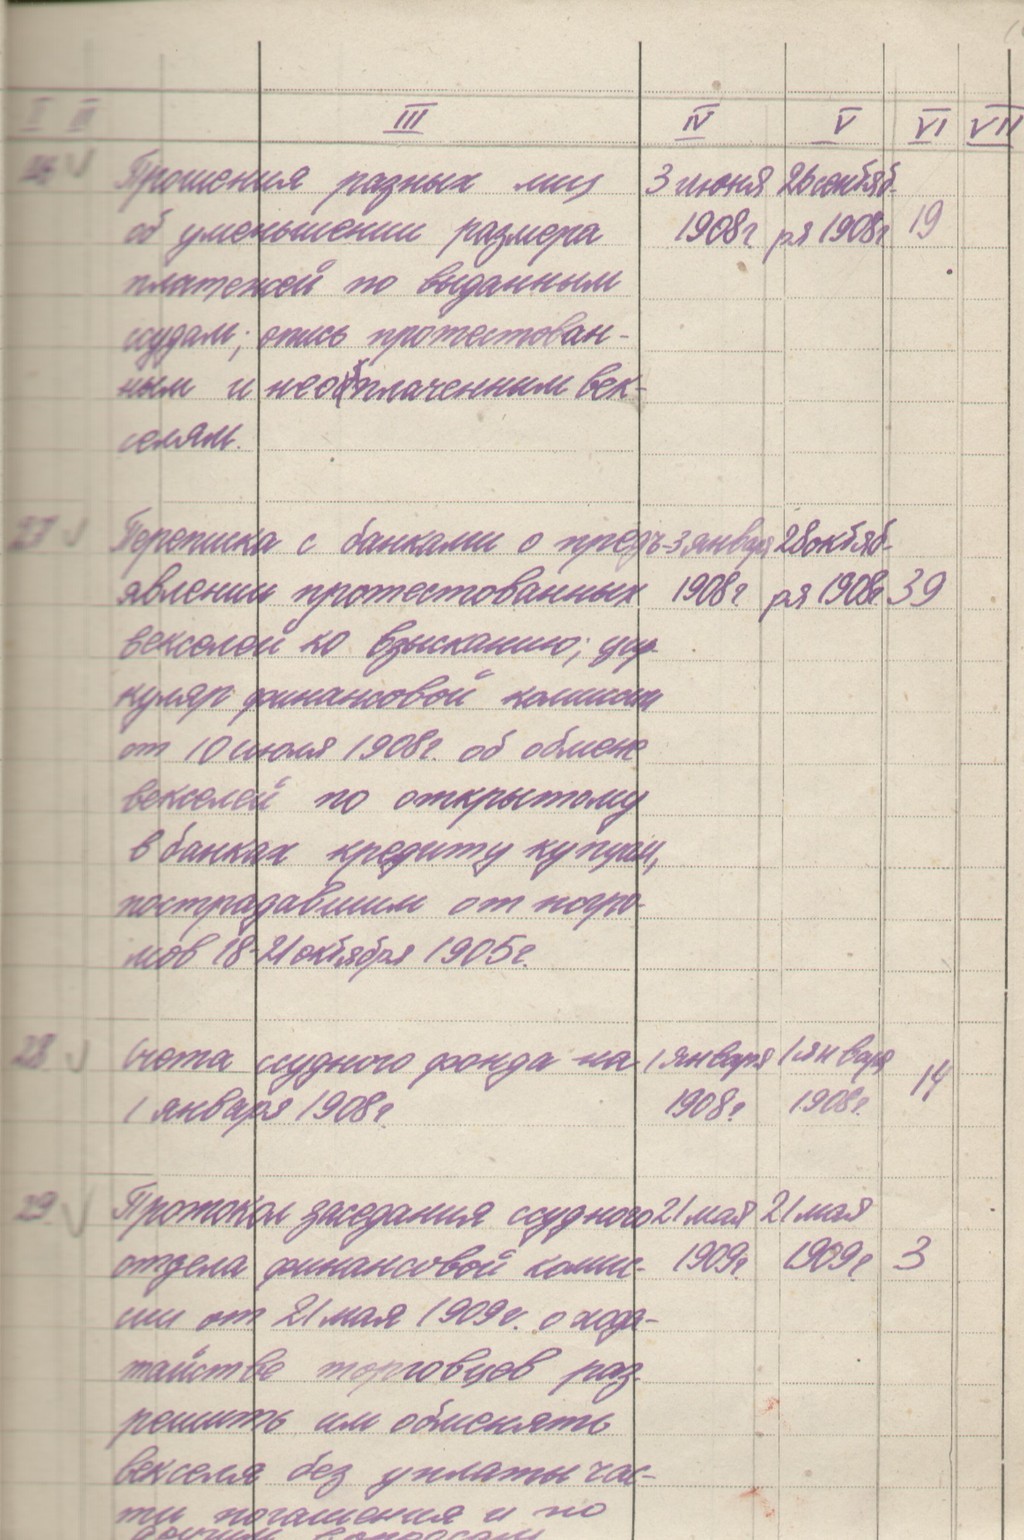 I II III IV V VI VII
26 Прошения разных лиц 3 июня 26 октяб-
об уменьшении размера 1908г ря 1908г 19
платежей по выданным
ссудам; опись протестован-
ным и неоплаченным век-
селям.
27 Переписка с банками о предъ- 3 января 28 октяб-
явлении протестованных 1908г. ря 1908г. 39
векселей ко взысканию; цир-
куляр финансовой комиссии
от 10 июля 1908г. об обмене
векселей по открытому
в банках кредиту купцам,
пострадавшим от погро-
мов 18-21 октября 1905г.
28 Счета ссудного фонда на 1 января 1 января
1 января 1908г 1908г. 1908г. 14
29 Протокол заседания ссудного 21 мая 21 мая
отдела финансовой комис- 1909г. 1909г. 3
сии от 21 мая 1909г. о хода-
тайстве торговцев раз
решить им обменять
векселя без уплаты час-
ти погашения и по